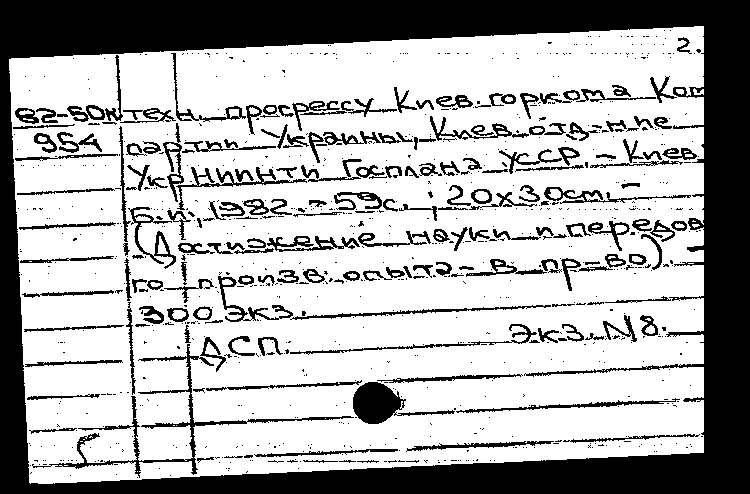 2.
62-50к техн. прогрессу Киев. горкома Ком
954 партии Украины, Киев. отд-ние
УкрНИИНТИ Госплана УССР. - Киев:
Б.и., 1982. - 59с. ; 20х30см. -
(Достижение науки и передово
го произв. опыта - в пр-во). -
300 экз.
ДСП. Экз. N8.